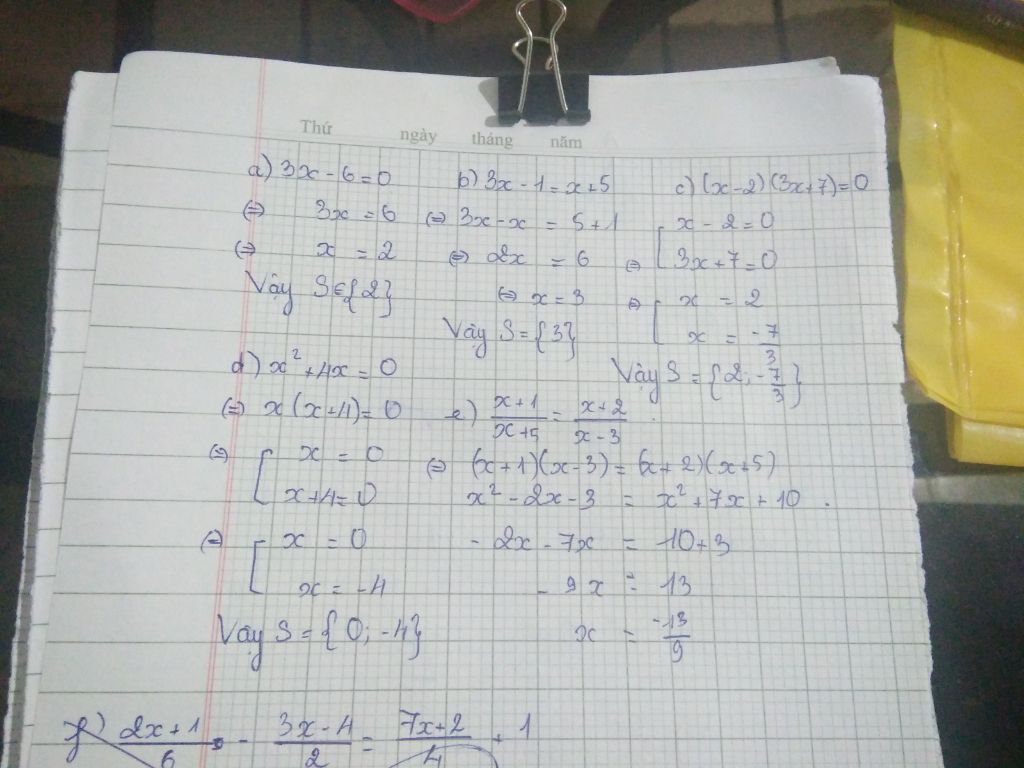 Thứ ngày tháng năm
a) 3x - 6 = 0
⇔ 3x = 6
⇔ x = 2
Vậy S∈{2}
b) 3x - 1 = x + 5
⇔ 3x - x = 5 + 1
⇔ 2x = 6
⇔ x = 3
Vậy S = {3}
c) (x - 2)(3x + 7) = 0
⇔ [ x - 2 = 0
3x + 7 = 0
⇔ [ x = 2
x = -7/3
Vậy S = {2; -7/3}
d) x² + 4x = 0
⇔ x(x + 4) = 0
⇔ [ x = 0
x + 4 = 0
⇔ [ x = 0
x = -4
Vậy S = {0; -4}
e) (x + 1)/(x + 5) = (x + 2)/(x - 3)
⇔ (x + 1)(x - 3) = (x + 2)(x + 5)
x² - 2x - 3 = x² + 7x + 10
- 2x - 7x = 10 + 3
- 9x = 13
x = -13/9
f) (2x + 1)/6 - (3x - 4)/2 = (7x + 2)/4 + 1